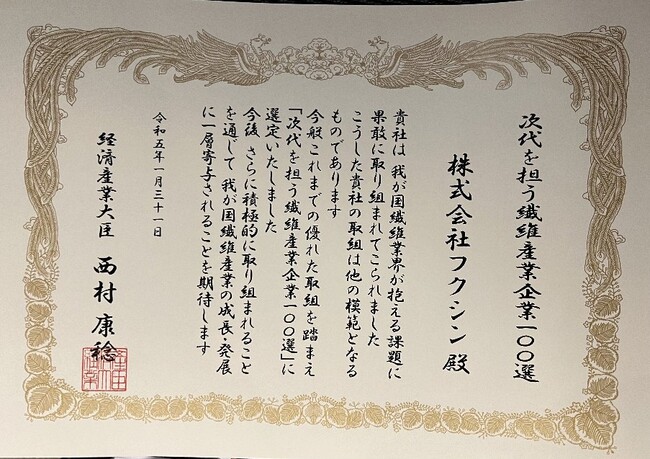 次代を担う繊維産業企業一〇〇選
株式会社フクシン 殿
貴社は 我が国繊維業界が抱える課題に
果敢に取り組まれてこられました
こうした貴社の取組は他の模範となる
ものであります
今般 これまでの優れた取組を踏まえ
「次代を担う繊維産業企業一〇〇選」に
選定いたしました
今後 さらに積極的に取り組まれること
を通じて 我が国繊維産業の成長・発展
に一層寄与されることを期待します
令和五年一月三十一日
経済産業大臣 西村 康稔